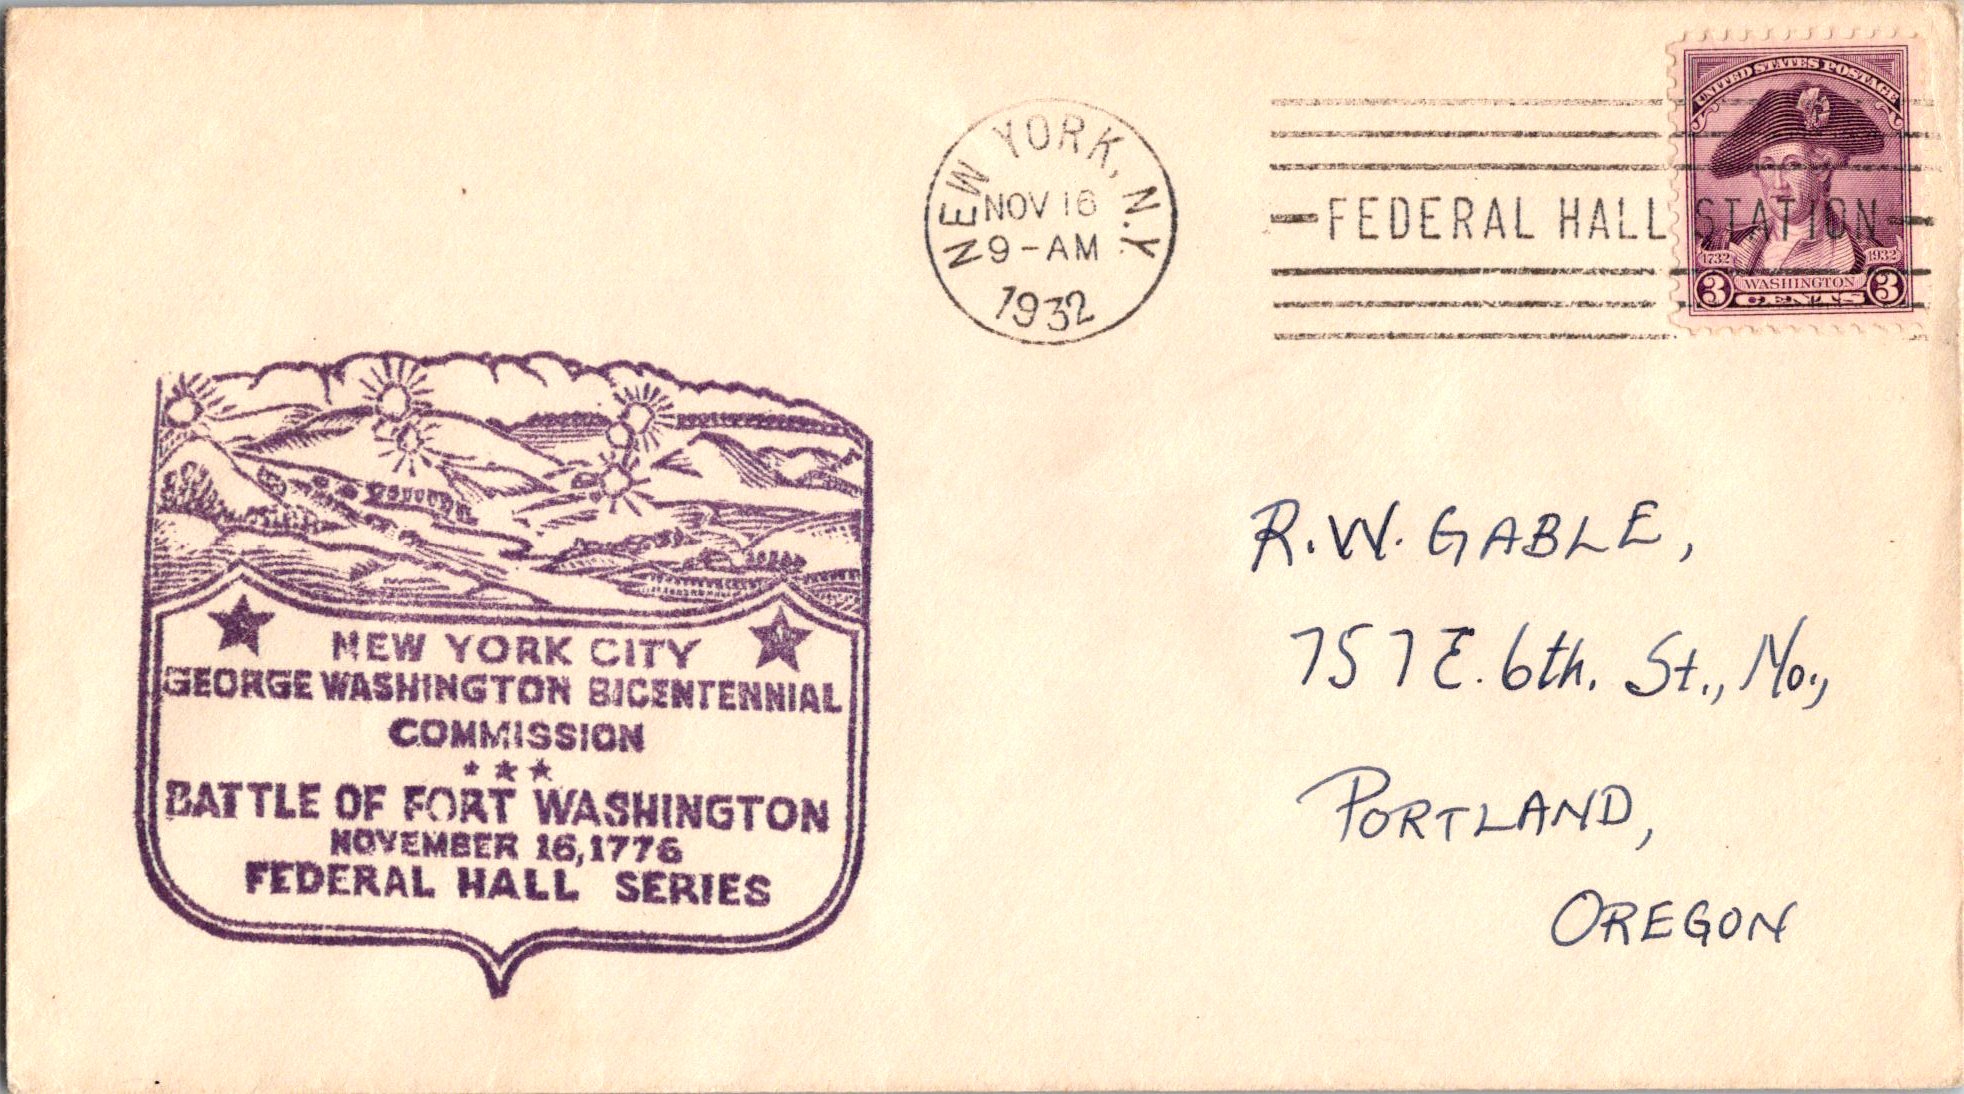 UNITED STATES POSTAGE
1732 1932
3 WASHINGTON 3
CENTS
NEW YORK, N.Y.
NOV 16
9-AM
1932
FEDERAL HALL STATION
NEW YORK CITY
GEORGE WASHINGTON BICENTENNIAL
COMMISSION
BATTLE OF FORT WASHINGTON
NOVEMBER 16, 1776
FEDERAL HALL SERIES
R. W. GABLE,
757 E. 6th. St., No.,
PORTLAND,
OREGON